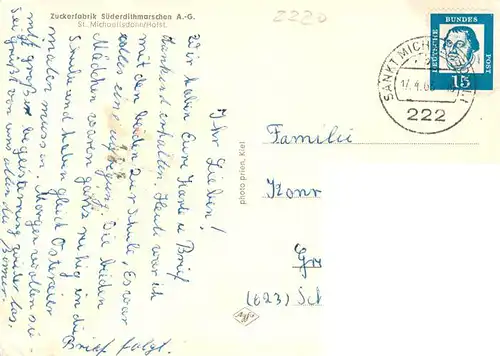 Zuckerfabrik Süderdithmarschen A.-G.
St. Michaelisdonn/Holst.
2220
DEUTSCHE BUNDESPOST
15
SANKT MICH
17.4.6
222
Ihr Lieben!
Wir haben Eure Karte u Brief
dankend erhalten. Heute war ich
mit den beiden zur Schule. Es war
alles eine aufgeregt. Die beiden
Mädchen waren ganz ruhig in die
Schule und haben gleich Ostereier
malen müssen. Morgen wollen sie
mit großer Begeisterung wieder los.
Seid gegrüßt von uns allen
Brief folgt.
photo prien, Kiel
Familie
Konr
Gr
(623) Sch
Agfa